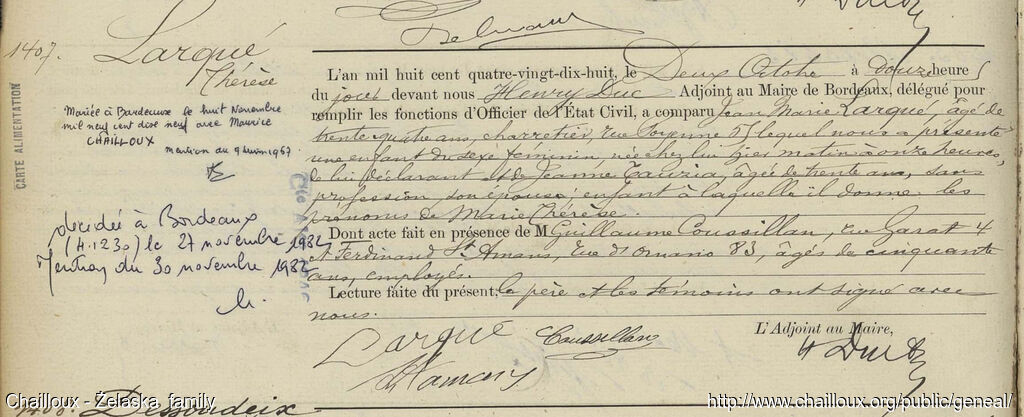 1407.
Larqué
Thérèse
CARTE ALIMENTATION
Mariée à Bordeaux le huit Novembre
mil neuf cent dix neuf avec Maurice
CHAILLOUX
mention du 9 Juin 1967
décédée à Bordeaux
(4.1230) le 27 novembre 1982
Mention du 30 novembre 1982
L'an mil huit cent quatre-vingt-dix-huit, le Deux Octobre à douze heures
du jour devant nous Henry Duc Adjoint au Maire de Bordeaux, délégué pour
remplir les fonctions d'Officier de l'État Civil, a comparu Jean Marie Larqué, âgé de
trente quatre ans, charretier, rue 51 lequel nous a présenté
une enfant du sexe féminin, née chez lui hier matin à onze heures,
de lui déclarant et de Jeanne Tauzia, âgée de trente ans, sans
profession, son épouse; enfant à laquelle il donne les
prénoms de Marie Thérèse.
Dont acte fait en présence de M Guillaume Coussillan, rue Garat 4
et Ferdinand St Amans, rue d'Ornano 83, âgés de cinquante
ans, employés.
Lecture faite du présent, le père et les témoins ont signé avec
nous.
L'Adjoint au Maire,
Larqué Coussillan
H Duc
Stamans
1408. Dessoudeix
Chailloux - Żelaska family
http://www.chailloux.org/public/geneal/